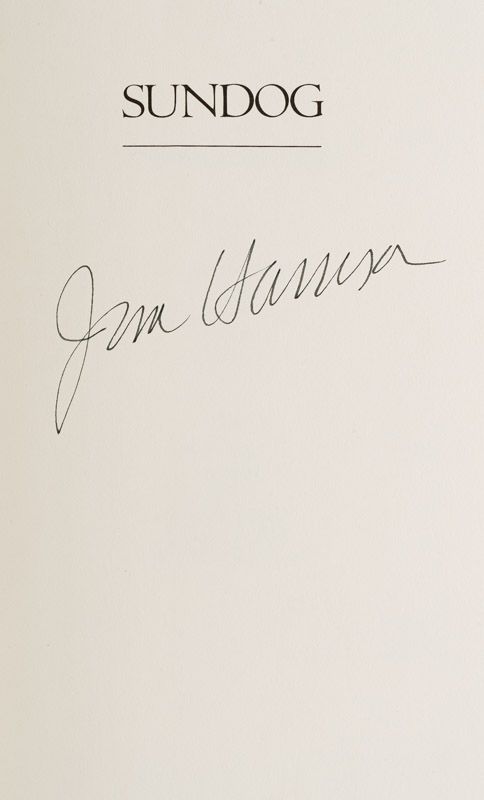 SUNDOG
Jim Harrison